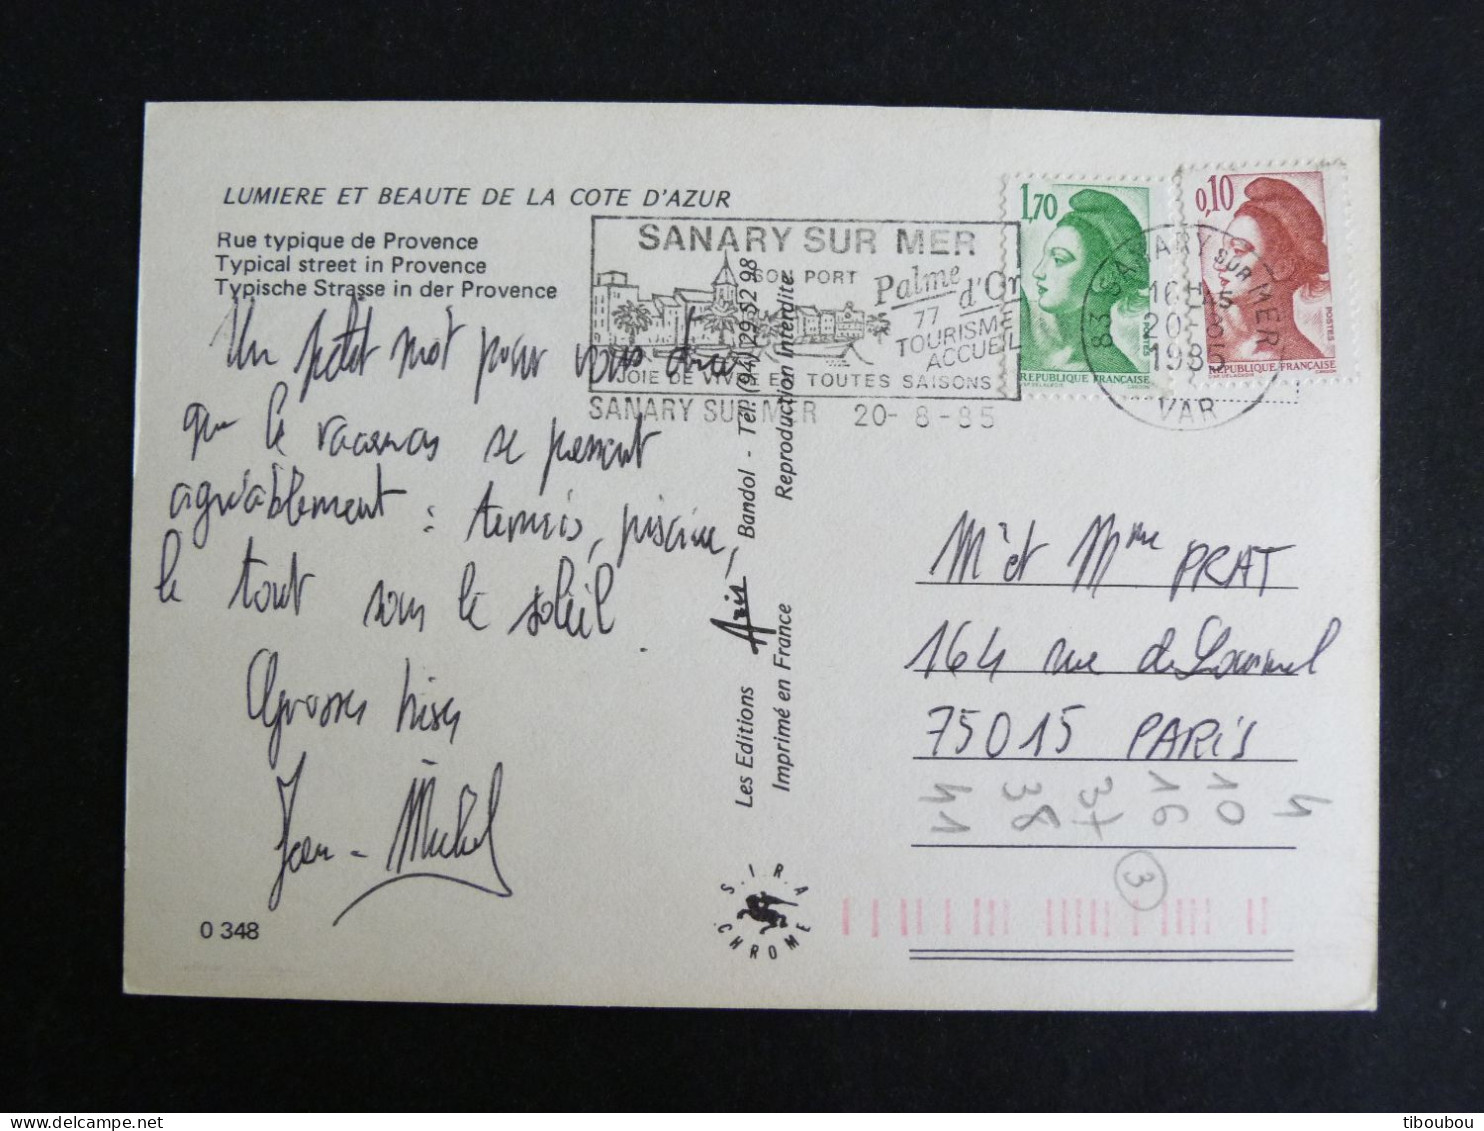 LUMIERE ET BEAUTE DE LA COTE D'AZUR
Rue typique de Provence
Typical street in Provence
Typische Strasse in der Provence
Un petit mot pour vous dire
que les vacances se passent
agréablement : tennis, piscine,
le tout sous le soleil.
Grosses bises
Jean-Michel
0 348
Les Editions Aris Bandol - Tél. (94) 29 52 98
Imprimé en France Reproduction Interdite
S.I.R.A.
CHROME
SANARY SUR MER
SON PORT
Palme
d'Or
77
TOURISME
ACCUEIL
JOIE DE VIVRE EN TOUTES SAISONS
SANARY SUR MER 20-8-85
1,70
POSTES
REPUBLIQUE FRANÇAISE
0,10
POSTES
REPUBLIQUE FRANÇAISE
83 SANARY SUR MER
16H45
20-8
1985
VAR
Mr et Mme PRAT
164 rue de Lourmel
75015 PARIS
4
10
16
37
38
41
3
tiboubou